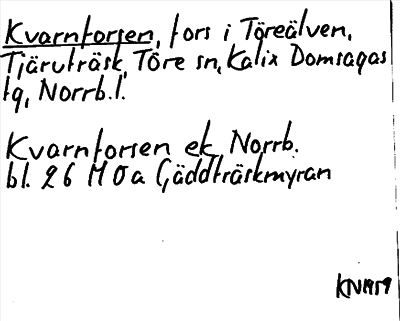 Kvarnforsen, fors i Töreälven,
Tjäruträsk, Töre sn, Kalix Domsagas
tg, Norrb.l.
Kvarnforsen ek Norrb.
bl. 26 M 0a Gäddträskmyran
KN1959